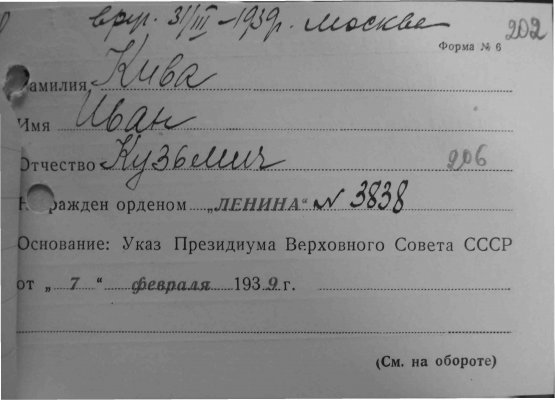 вруч. 31/III-1939г. Москва
202
Форма № 6
Фамилия Кива
Имя Иван
Отчество Кузьмич 206
Награжден орденом „ЛЕНИНА“ № 3838
Основание: Указ Президиума Верховного Совета СССР
от „ 7 “ февраля 1939 г.
(См. на обороте)